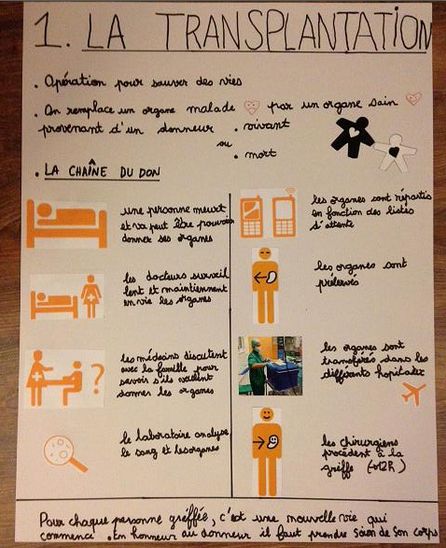 1. LA TRANSPLANTATION
. Opération pour sauver des vies
. On remplace un organe malade par un organe sain
provenant d'un donneur . vivant
ou
. mort
. LA CHAÎNE DU DON
une personne meurt
et va peut être pouvoir
donner ses organes
les docteurs surveil
lent et maintiennent
en vie les organes
les médecins discutent
avec la famille pour
savoir s'ils veulent
donner les organes
?
le laboratoire analyse
le sang et les organes
les organes sont répartis
en fonction des listes
d'attente
les organes sont
prélevés
les organes sont
transférés dans les
différents hopitaux
les chirurgiens
procèdent à la
greffe
Pour chaque personne grèffée, c'est une nouvelle vie qui
commence. En honneur au donneur il faut prendre soin de son corps